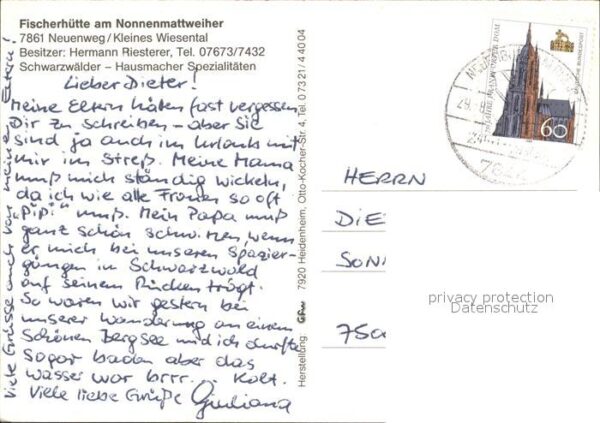 Fischerhütte am Nonnenmattweiher
7861 Neuenweg/Kleines Wiesental
Besitzer: Hermann Riesterer, Tel. 07673/7432
Schwarzwälder – Hausmacher Spezialitäten
Lieber Dieter!
Meine Eltern hätten fast vergessen
Dir zu schreiben – aber Sie
sind ja auch im Urlaub mit
mir im Streß. Meine Mama
muß mich ständig wickeln,
da ich wie alle Frauen so oft
"Pipi" muß. Mein Papa muß
ganz schön schwitzen, wenn
er mich bei unseren Spazier-
gängen im Schwarzwald
auf seinem Rücken trägt.
So waren wir gestern bei
unserer Wanderung an einem
schönen Bergsee und ich durfte
sogar baden aber das
Wasser war brrr... kalt.
Viele liebe Grüße Giuliana
Viele Grüsse auch von meinen Eltern!
Herstellung: 7920 Heidenheim, Otto-Kocher-Str. 4, Tel. 07321/44004
DEUTSCHE BUNDESPOST
FRANKFURTER DOM
60
HERRN
DIE
SON
750
privacy protection
Datenschutz